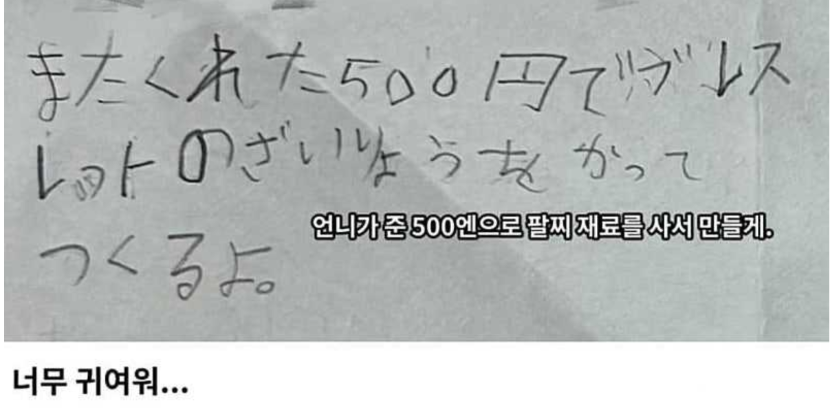 またくれた500円でブレス
レットのざいりょうをかって
つくるよ。
언니가 준 500엔으로 팔찌 재료를 사서 만들게.
너무 귀여워...